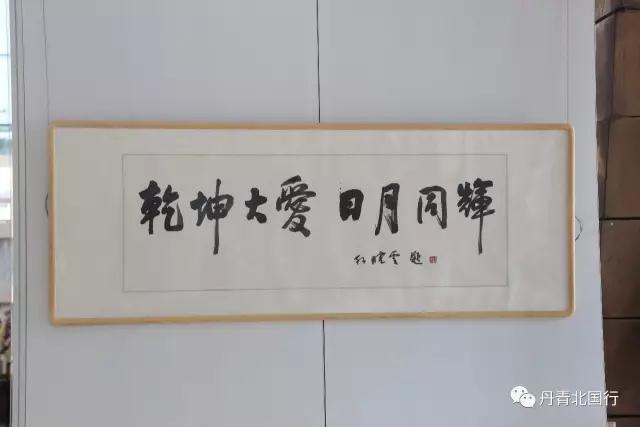 乾坤大愛 日月同輝
题
丹青北国行